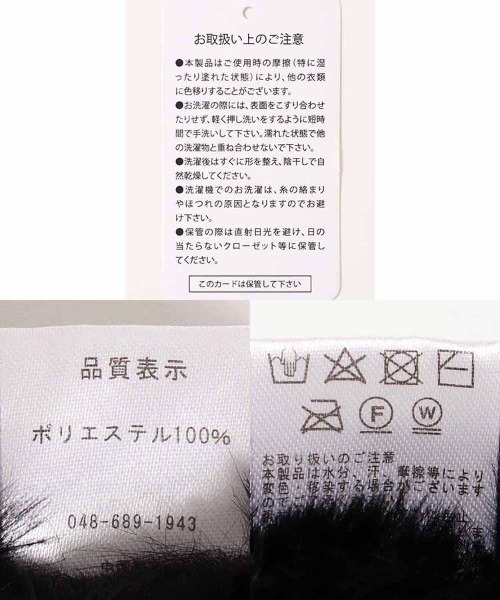 お取扱い上のご注意
●本製品はご使用時の摩擦(特に湿
ったり塗れた状態)により、他の衣類
に色移りすることがございます。
●お洗濯の際には、表面をこすり合わせ
たりせず、軽く押し洗いをするように短時
間で手洗いして下さい。濡れた状態で他
の洗濯物と重ね合わせないで下さい。
●洗濯後はすぐに形を整え、陰干しで自
然乾燥してください。
●洗濯機でのお洗濯は、糸の絡まり
やほつれの原因となりますのでお避
け下さい。
●保管の際は直射日光を避け、日の
当たらないクローゼット等に保管し
てください。
このカードは保管して下さい
品質表示
ポリエステル100%
048-689-1943
F
W
お取り扱いのご注意
本製品は水分、汗、摩擦等により
変色や移染する場合がございます